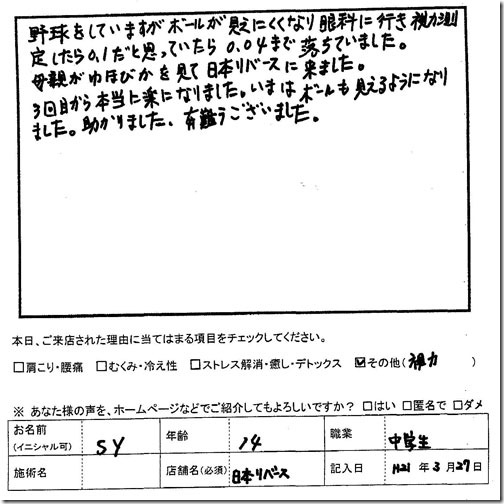 野球をしていますがボールが見えにくくなり眼科に行き視力測
定したら0.1だと思っていたら0.04まで落ちていました。
母親がゆほびかを見て日本リバースに来ました。
3回目から本当に楽になりました。いまはボールも見えるようになり
ました。助かりました、有難うございました。
本日、ご来店された理由に当てはまる項目をチェックしてください。
□肩こり・腰痛 □むくみ・冷え性 □ストレス解消・癒し・デトックス ☑その他(視力 )
※ あなた様の声を、ホームページなどでご紹介してもよろしいですか？ □はい □匿名で □ダメ
お名前 (イニシャル可) SY 年齢 14 職業 中学生
施術名 店舗名(必須) 日本リバース 記入日 H21 年 3 月 27 日